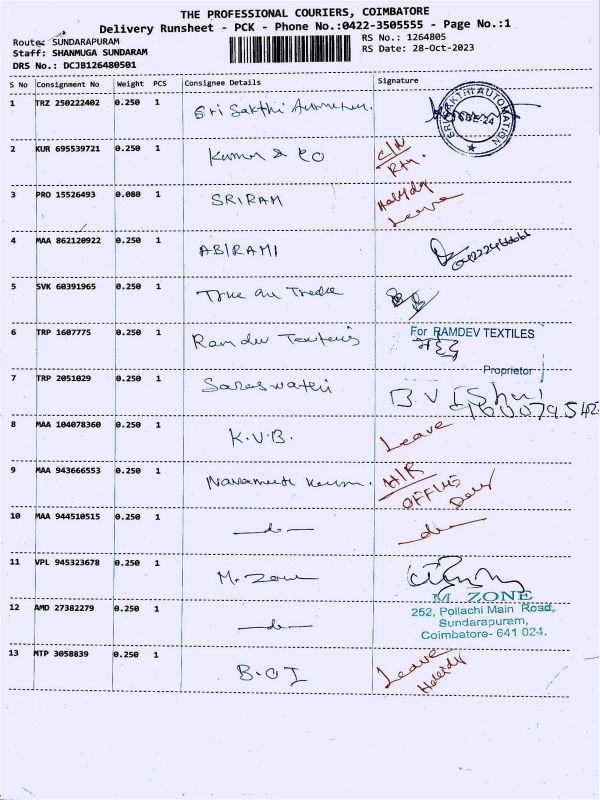 THE PROFESSIONAL COURIERS, COIMBATORE
Delivery Runsheet - PCK - Phone No.:0422-3505555 - Page No.:1
Route: SUNDARAPURAM
RS No.: 1264805
Staff: SHANMUGA SUNDARAM
RS Date: 28-Oct-2023
DRS No.: DCJB126480501
S No Consignment No Weight PCS Consignee Details Signature
1 TRZ 250222402 0.250 1 Sri Sakthi
SRI SAKTHI AUTOMATION
2 KUR 695539721 0.250 1 Kumar & Co
3 PRO 15526493 0.080 1 SRIRAM
Leave
4 MAA 862120922 0.250 1 ABIRAMI
5 SVK 60391965 0.250 1
6 TRP 1607775 0.250 1 Ramdev
For RAMDEV TEXTILES
Proprietor
7 TRP 2051029 0.250 1 Saraswathi
8 MAA 104078360 0.250 1 K.V.B. Leave
9 MAA 943666553 0.250 1
10 MAA 944510515 0.250 1 —do— —do—
11 VPL 945323678 0.250 1 M. Zone
M. ZONE
252, Pollachi Main Road,
Sundarapuram,
Coimbatore- 641 024.
12 AMD 27382279 0.250 1 —do—
13 MTP 3058839 0.250 1 B.O.I Leave